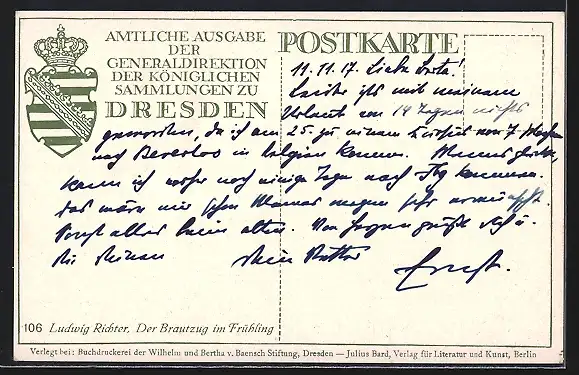 AMTLICHE AUSGABE
DER
GENERALDIREKTION
DER KÖNIGLICHEN
SAMMLUNGEN ZU
DRESDEN
POSTKARTE
11.11.17. Liebe
Leider ist mit meinem
Urlaub von 14 Tagen nichts
geworden, da ich am 25. zu einem Kursus von 7
nach Beverloo in Belgien komme.
kann ich vorher noch einige Tage nach kommen.
Das wäre mir schon Mamas wegen sehr erwünscht.
Sonst alles beim alten. Von Herzen grüßt Dich u.
die Deinen Dein Vetter
Ernst.
106 Ludwig Richter, Der Brautzug im Frühling
Verlegt bei: Buchdruckerei der Wilhelm und Bertha v. Baensch Stiftung, Dresden — Julius Bard, Verlag für Literatur und Kunst, Berlin